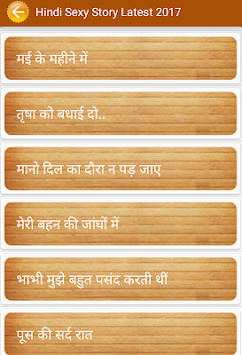 Hindi Sexy Story Latest 2017
मई के महीने में
तृषा को बधाई दो..
मानो दिल का दौरा न पड़ जाए
मेरी बहन की जांघों में
भाभी मुझे बहुत पसंद करती थीं
पूस की सर्द रात